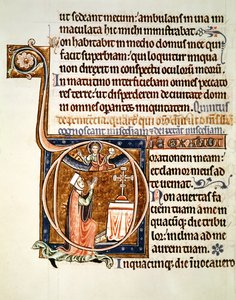 ut sedeant mecum: ambulans in uia im
maculata hic michi ministrabat.
Non habitabit in medio domus mee qui
facit superbiam: qui loquitur iniqua
non direxit in conspectu oculorū meorū
In matutino interficiebam omnes peccato
res terre: ut disperderem de ciuitate domi
ni omnes operantes iniquitatem. Quintus
orationem meam: et
clamor meus ad
te ueniat.
Non auertas fa
ciem tuam a me:
in quacūque die tribu
lor: inclina ad me
aurem tuam.
In quacumque die inuocauero